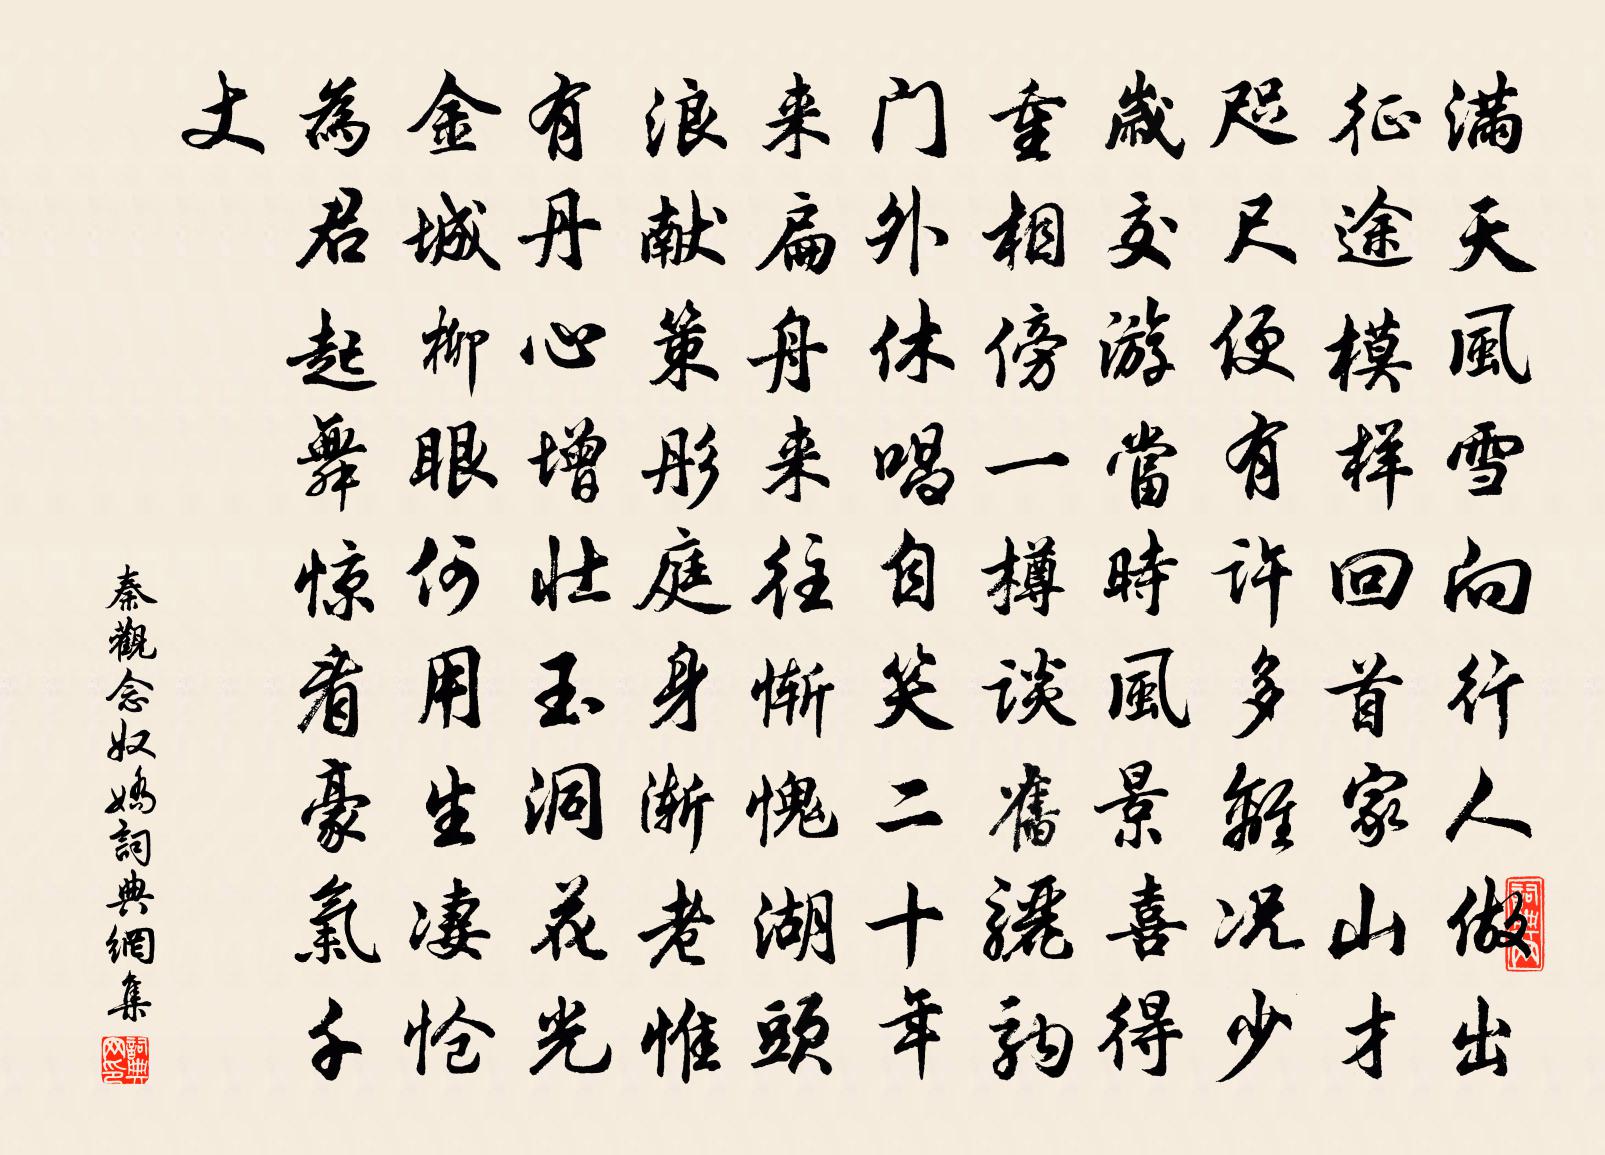 满天風雪向行人做出
征途模样回首家山才
咫尺便有许多離况少
歲交游當時風景喜得
重相傍一樽談舊驪駒
门外休唱自笑二十年
来扁舟来往慚愧湖頭
浪献策彤庭身渐老惟
有丹心增壮玉洞花光
金城柳眼何用生凄怆
為君起舞惊看豪氣千
丈
秦觀念奴嬌詞典網集
詞典网
詞典网印